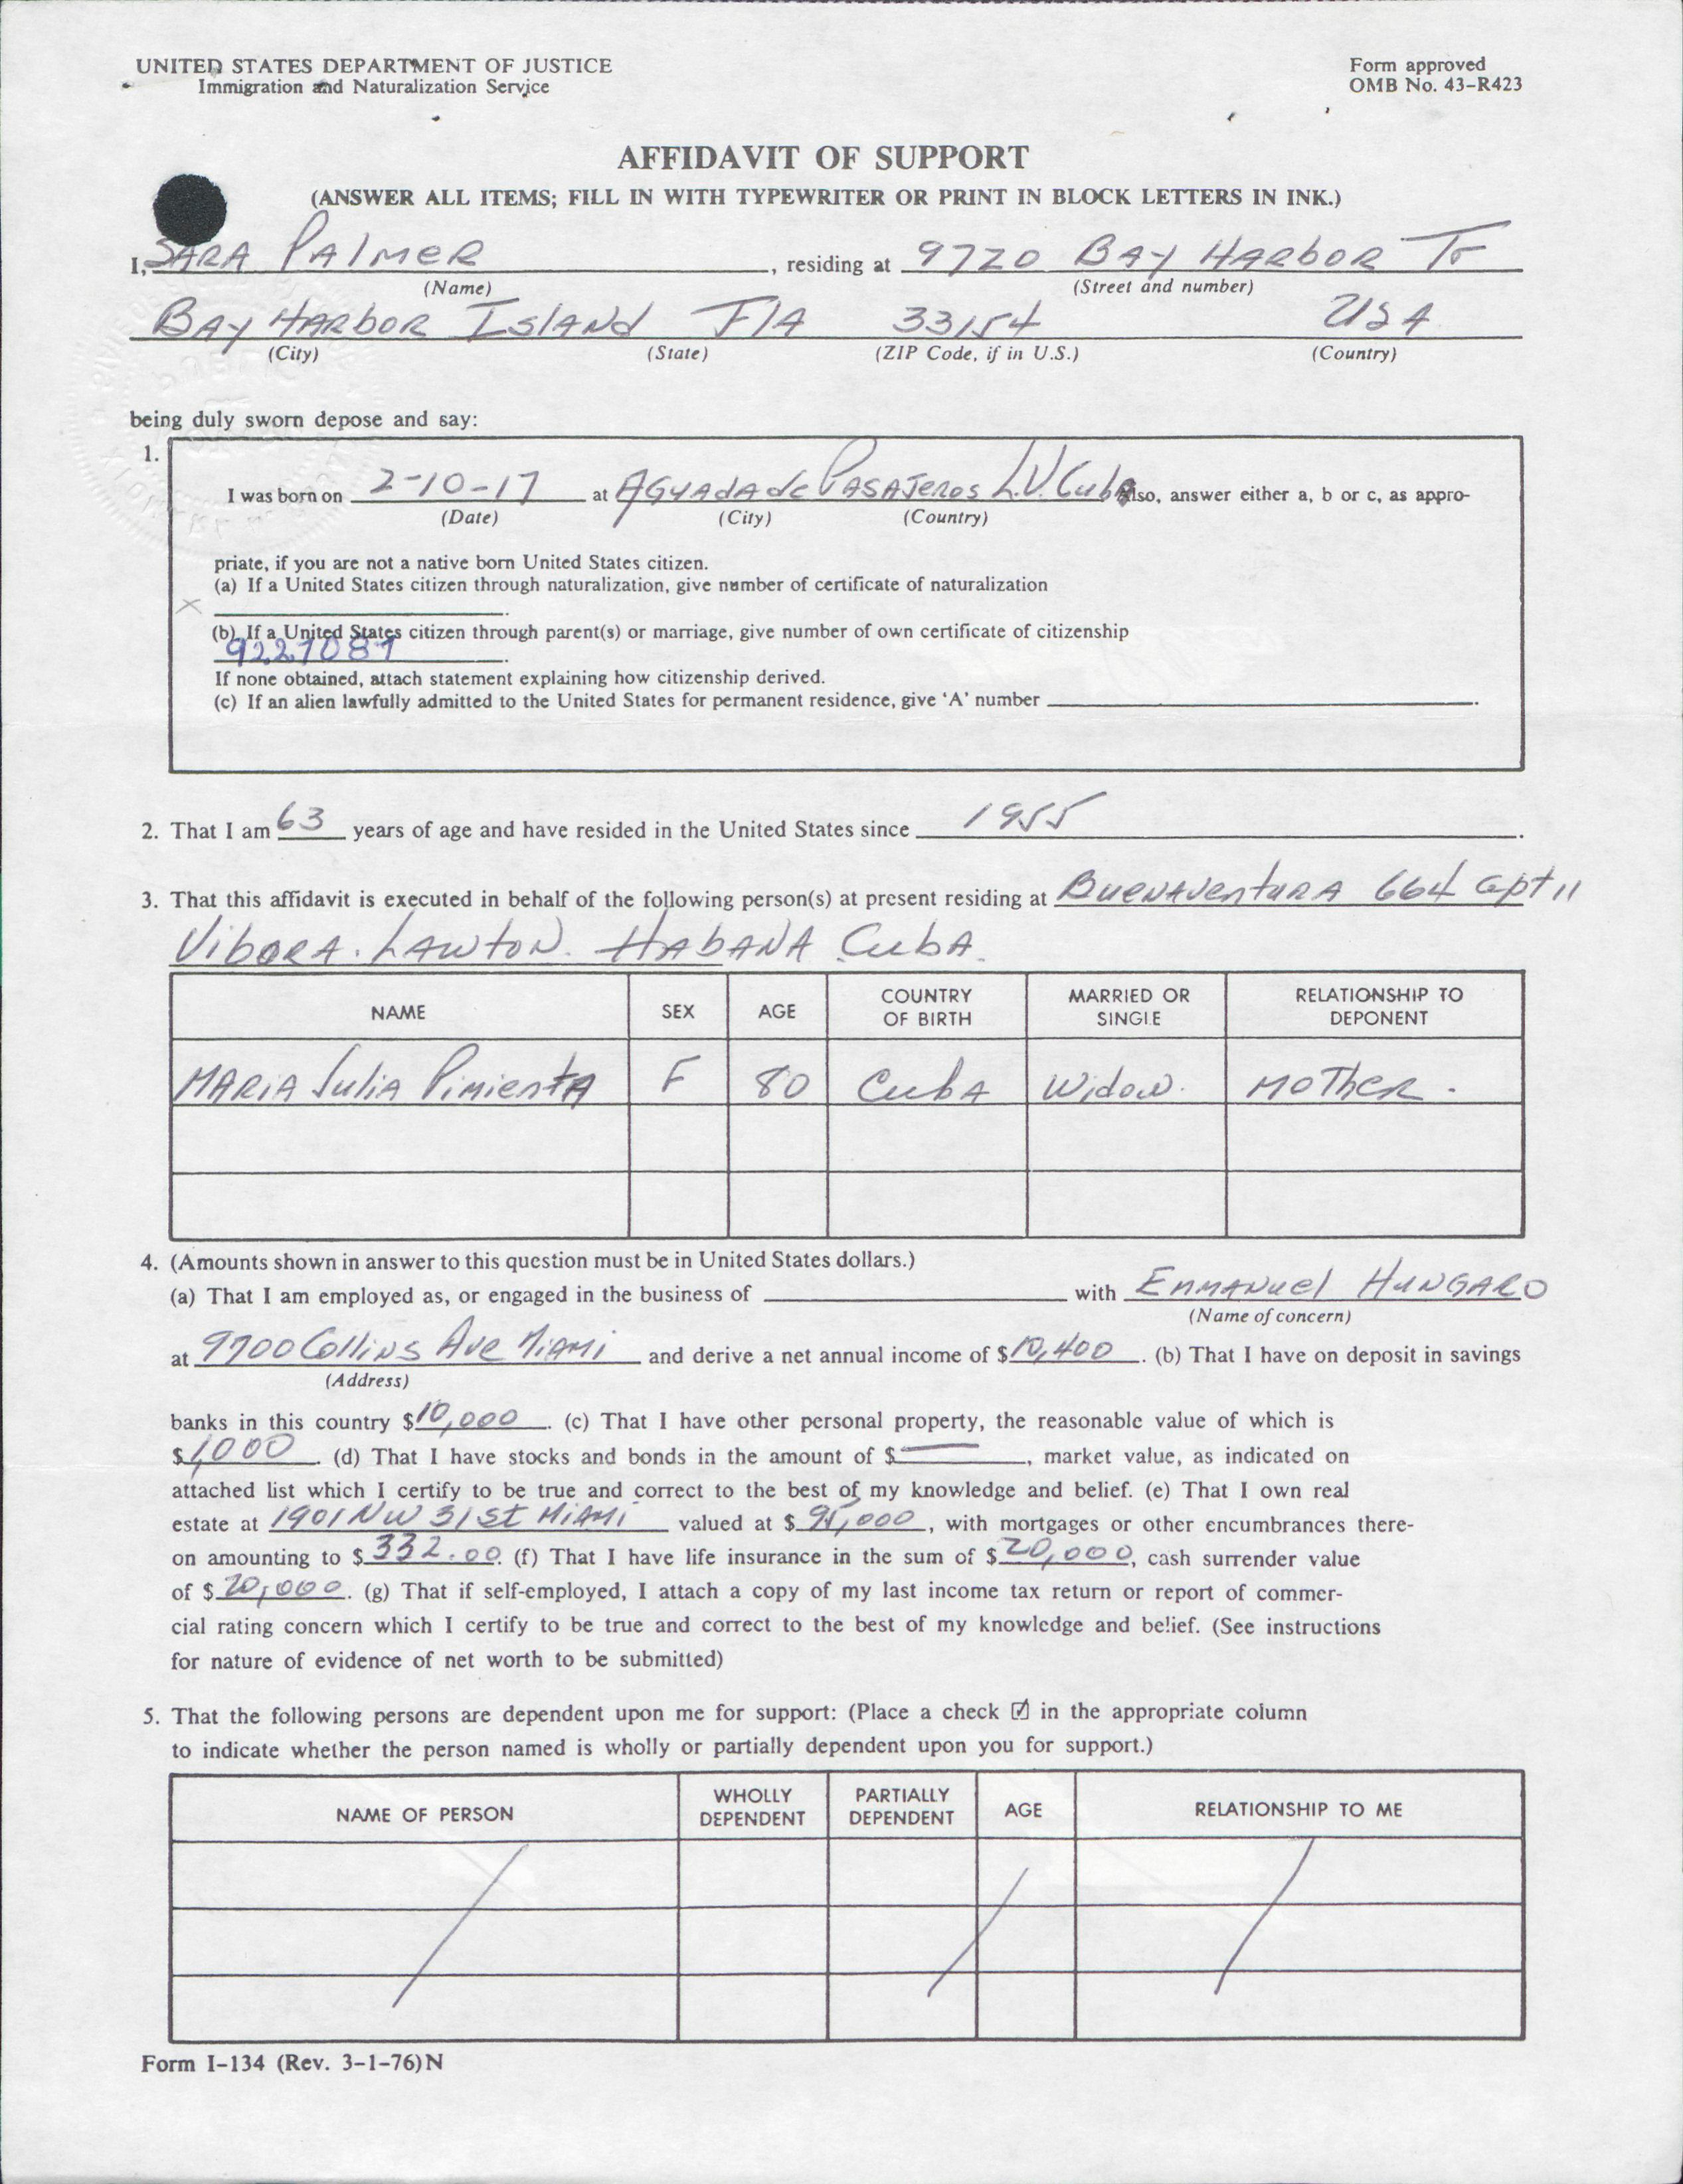 UNITED STATES DEPARTMENT OF JUSTICE
Immigration and Naturalization Service
Form approved
OMB No. 43-R423
AFFIDAVIT OF SUPPORT
(ANSWER ALL ITEMS; FILL IN WITH TYPEWRITER OR PRINT IN BLOCK LETTERS IN INK.)
I, SARA PAlMER, residing at 9720 BAY HARbOR Tr
(Name) (Street and number)
BAY HARbOR IslANd FlA 33154 USA
(City) (State) (ZIP Code, if in U.S.) (Country)
being duly sworn depose and say:
1.
I was born on 2-10-17 at AGUAdA de PASAJeros L.V. CubA Also, answer either a, b or c, as appro-
(Date) (City) (Country)
priate, if you are not a native born United States citizen.
(a) If a United States citizen through naturalization, give number of certificate of naturalization
x
(b) If a United States citizen through parent(s) or marriage, give number of own certificate of citizenship
9227087
If none obtained, attach statement explaining how citizenship derived.
(c) If an alien lawfully admitted to the United States for permanent residence, give 'A' number
2. That I am 63 years of age and have resided in the United States since 1955.
3. That this affidavit is executed in behalf of the following person(s) at present residing at BUENAVENturA 664 apt 11
VibORA. LAWtON. HAbANA CubA.
NAME SEX AGE COUNTRY OF BIRTH MARRIED OR SINGLE RELATIONSHIP TO DEPONENT
MARiA JuliA PimientA F 80 CubA Widow. MOTheR.
4. (Amounts shown in answer to this question must be in United States dollars.)
(a) That I am employed as, or engaged in the business of with EnMANuel HUNGARO
(Name of concern)
at 9700 Collins Ave MiAMi and derive a net annual income of $10,400. (b) That I have on deposit in savings
(Address)
banks in this country $10,000. (c) That I have other personal property, the reasonable value of which is
$1,000. (d) That I have stocks and bonds in the amount of $—, market value, as indicated on
attached list which I certify to be true and correct to the best of my knowledge and belief. (e) That I own real
estate at 1901 NW 31 St MiAMi valued at $95,000, with mortgages or other encumbrances there-
on amounting to $332.00. (f) That I have life insurance in the sum of $20,000, cash surrender value
of $20,000. (g) That if self-employed, I attach a copy of my last income tax return or report of commer-
cial rating concern which I certify to be true and correct to the best of my knowledge and belief. (See instructions
for nature of evidence of net worth to be submitted)
5. That the following persons are dependent upon me for support: (Place a check ☑ in the appropriate column
to indicate whether the person named is wholly or partially dependent upon you for support.)
NAME OF PERSON WHOLLY DEPENDENT PARTIALLY DEPENDENT AGE RELATIONSHIP TO ME
Form I-134 (Rev. 3-1-76)N